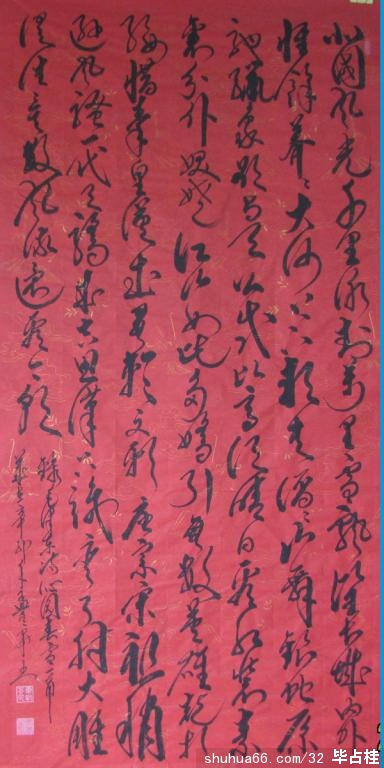 北國风光千里冰封万里雪飘望长城内外
惟餘莽々大河上下頓失滔々山舞銀蛇原
驰蜡象欲与天公试比高须晴日看红装素
裹分外妖娆江山如此多娇引无数英雄竞折
腰惜秦皇汉武略输文彩唐宗宋祖稍
逊风骚一代天骄成吉思汗只识弯弓射大雕
俱往矣数风流还看今朝
录毛泽东词沁园春雪一首
岁在辛卯年
shuhua66.com/32 毕占桂